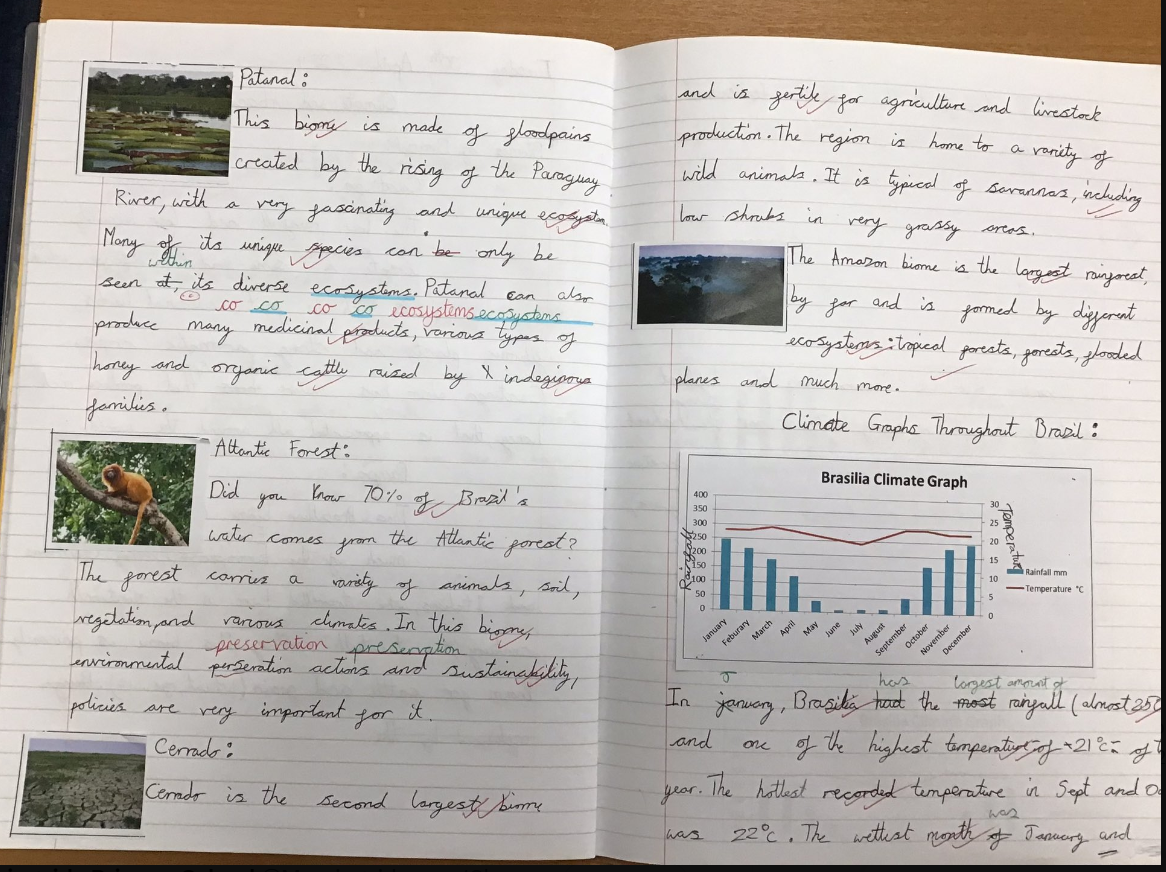 Patanal:
This biome is made of floodpains
created by the rising of the Paraguay
River, with a very fascinating and unique ecosystem.
Many of its unique species can be only be
within
seen at, its diverse ecosystems. Patanal can also
co co co co ecosystems ecosystems
produce many medicinal products, various types of
honey and organic cattle raised by X indeginous
families.
Atlantic Forest:
Did you know 70% of Brazil's
water comes from the Atlantic forest?
The forest carries a variety of animals, soil,
vegetation, and various climates. In this biome,
preservation preservation
environmental perseration actions and sustainability,
policies are very important for it.
Cerrado:
Cerrado is the second largest biome
and is fertile for agriculture and livestock
production. The region is home to a variety of
wild animals. It is typical of savannas, including
low shrubs in very grassy areas.
The Amazon biome is the largest rainforest,
by far and is formed by different
ecosystems: tropical forests, forests, flooded
planes and much more.
Climate Graphs Throughout Brazil:
Brasilia Climate Graph
400
350
300
250
200
150
100
50
0
Rainfall
30
25
20
15
10
5
0
Temperature
Rainfall mm
Temperature °C
January
Feburary
March
April
May
June
July
August
September
October
November
December
J has largest amount of
In january, Brasilia had the most rainfall (almost 250
and one of the highest temperature of 21°c of
year. The hottest recorded temperature in Sept and
was
was 22°c. The wettest month of January and